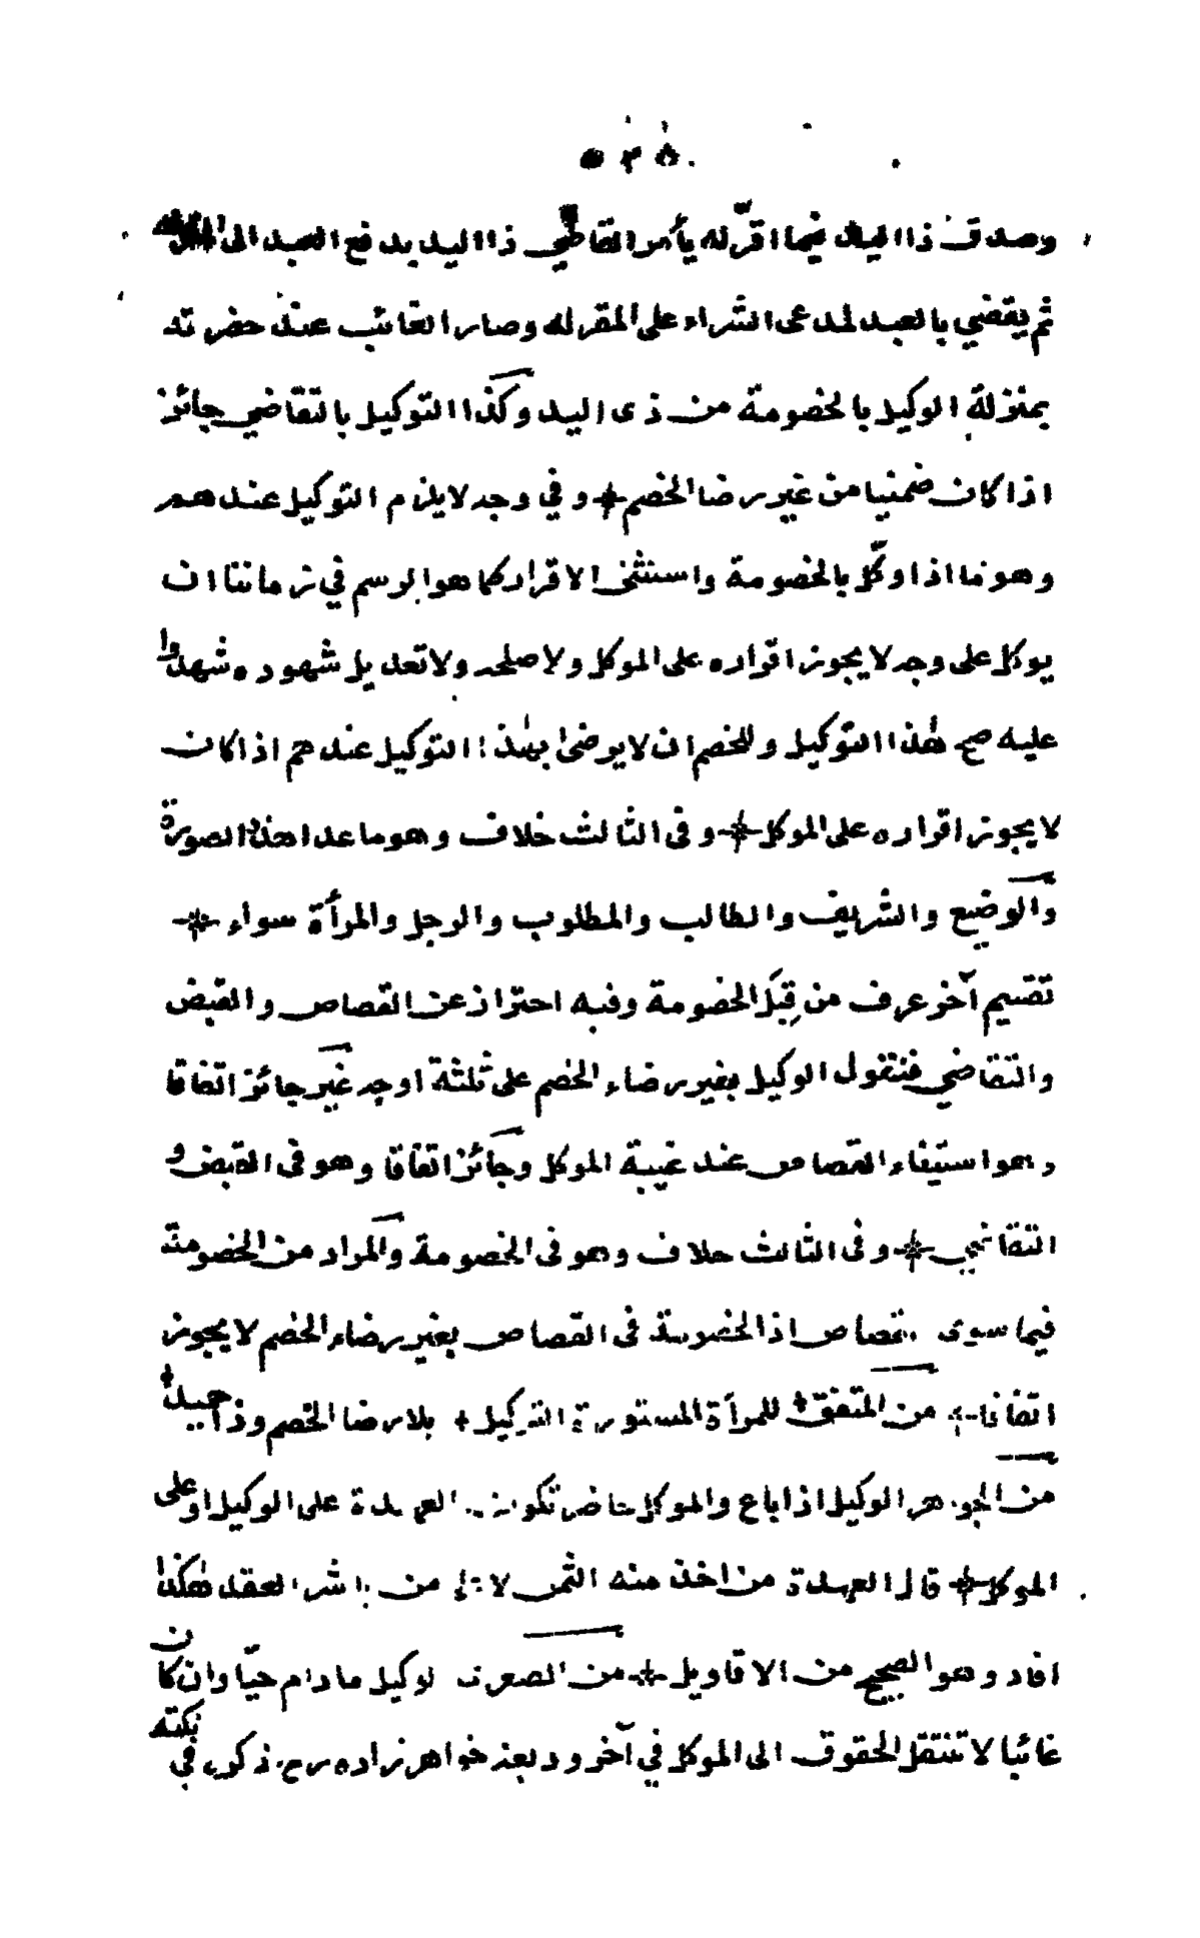 ٥٣٨
وصدق ذا اليد فيما اقرّ له يأمر القاضي ذا اليد بدفع العبد الى
ثم يقضي بالعبد لمدعى الشراء على المقر له وصار الغائب عند حضرته
بمنزلة الوكيل بالخصومة من ذى اليد وكذا التوكيل بالتقاضي جائز
اذا كان ضمنيا من غير رضا الخصم * وفي وجه لا يلزم التوكيل عندهم
وهو ما اذا وكّل بالخصومة واستثنى الاقرار كما هو الرسم في زماننا ان
يوكل على وجه لا يجوز اقراره على الموكل ولا صلحه ولا تعديل شهوده شهدوا
عليه صح هذا التوكيل وللخصم ان لا يرضى بهذا التوكيل عندهم اذا كان
لا يجوز اقراره على الموكل * وفى الثالث خلاف وهو ما عدا هذه الصورة
والوضيع والشريف والطالب والمطلوب والرجل والمرأة سواء *
تقسيم آخر عرف من قِبَل الخصومة وفيه احتراز عن القصاص والقبض
والتقاضي فنقول الوكيل بغير رضاء الخصم على ثلثة اوجه غير جائز اتفاقا
وهو استيفاء القصاص عند غيبة الموكل وجائز اتفاقا وهو فى القبض و
التقاضي * وفى الثالث خلاف وهو فى الخصومة والمراد من الخصومة
فيما سوى القصاص اذ الخصومة فى القصاص بغير رضاء الخصم لا يجوز
اتفاقا * من المتفق * للمرأة المستورة التوكيل * بلا رضا الخصم وذا جميل *
من الجوهر الوكيل اذا باع والموكل حاضر تكون العهدة على الوكيل او على
الموكل * قال العهدة من اخذ منه الثمن لا على من باشر العقد هكذا
افاد وهو الصحيح من الاقاويل * من الصغرى الوكيل ما دام حيّا وان كان
غائبا لا تنتقل الحقوق الى الموكل في آخر وديعة خواهر زاده رح ذكر في نكته